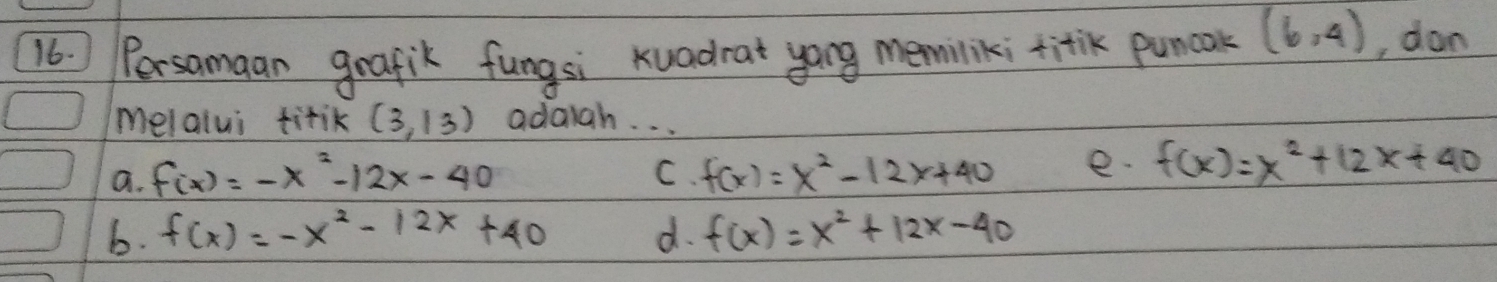 16. Persamaan grafik fungsi kuadrat yang memiliki titik puncak (6,4), dan
melalui titik (3,13) adalah...
a. f(x) = -x² - 12x - 40 c. f(x) = x² - 12x + 40 e. f(x) = x² + 12x + 40
b. f(x) = -x² - 12x + 40 d. f(x) = x² + 12x - 40